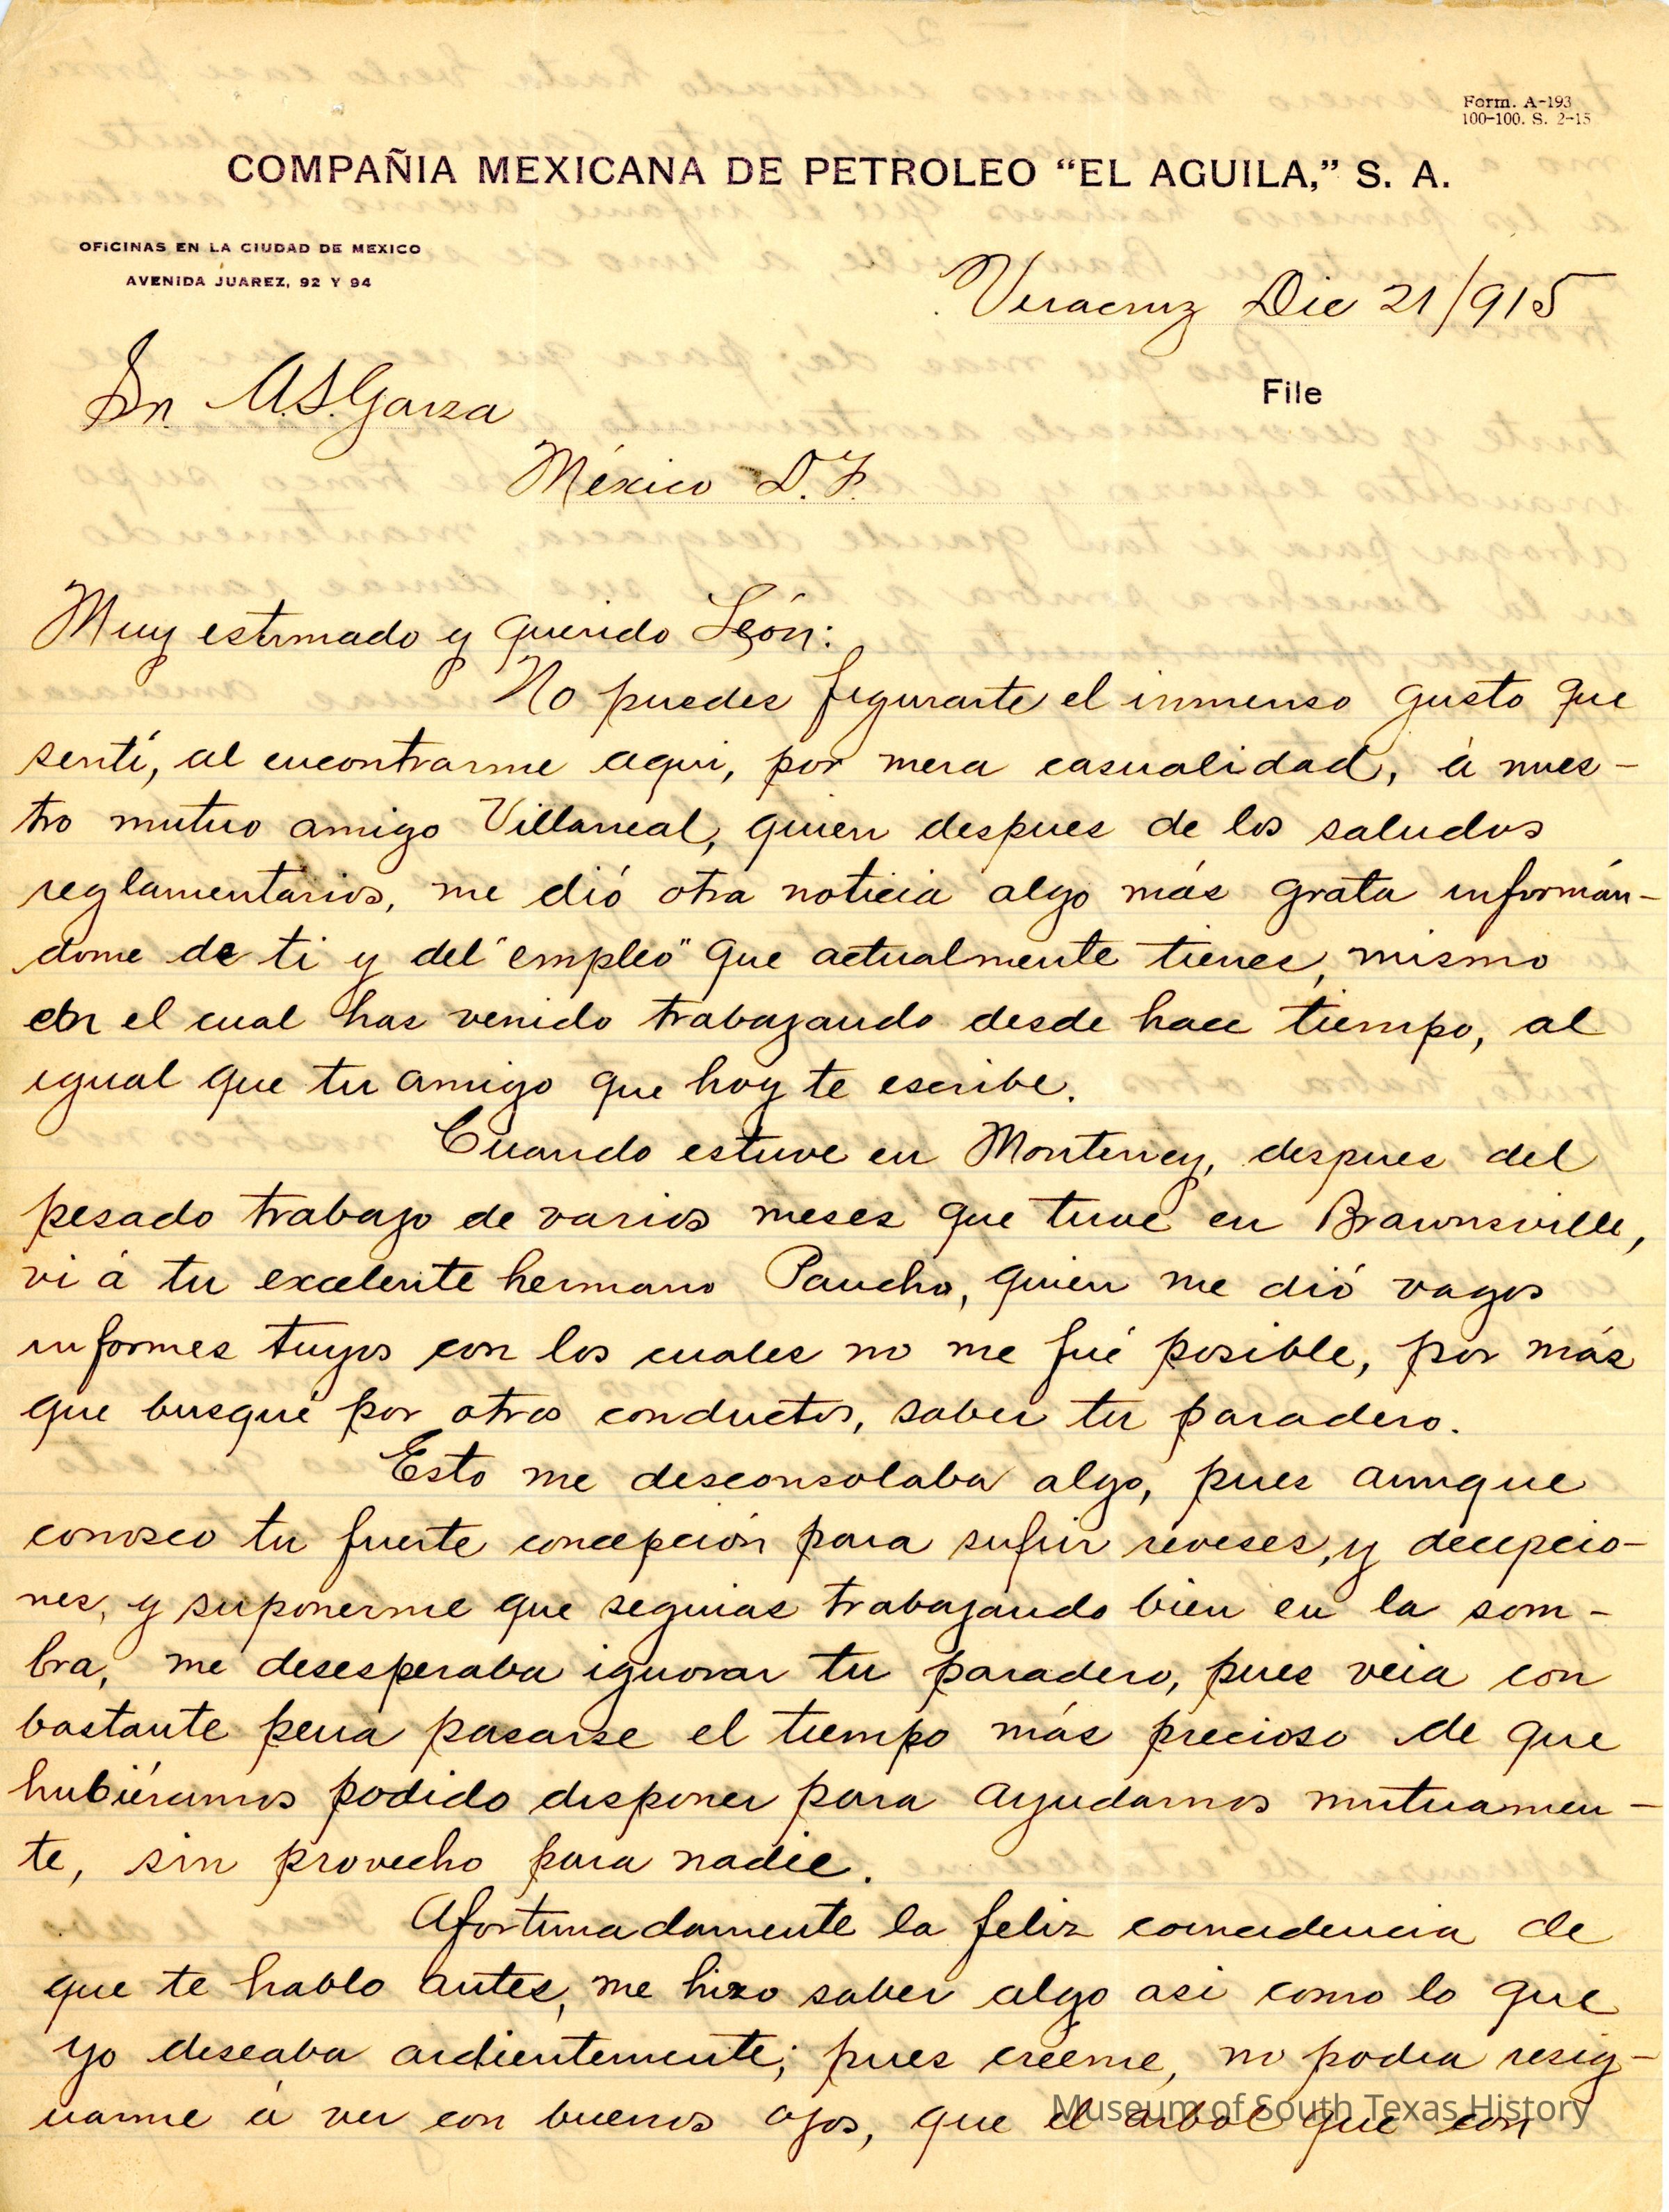 Form. A-193
100-100. S. 2-15
COMPAÑIA MEXICANA DE PETROLEO “EL AGUILA,” S. A.
OFICINAS EN LA CIUDAD DE MEXICO
AVENIDA JUAREZ, 92 Y 94
Veracruz Dic 21/915
File
Sr. A.S. Garza
México D.F.
Muy estimado y querido León:
No puedes figurarte el inmenso gusto que
sentí, al encontrarme aqui, por mera casualidad, á nues-
tro mutuo amigo Villarreal, quien despues de los saludos
reglamentarios, me dió otra noticia algo más grata informán-
dome de ti y del "empleo" que actualmente tienes, mismo
en el cual has venido trabajando desde hace tiempo, al
igual que tu amigo que hoy te escribe.
Cuando estuve en Monterrey, despues del
pesado trabajo de varios meses que tuve en Brawnsville,
vi á tu excelente hermano Pancho, quien me dió vagos
informes tuyos con los cuales no me fué posible, por más
que busqué por otros conductos, saber tu paradero.
Esto me desconsolaba algo, pues aunque
conosco tu fuerte concepción para sufrir reveses, y decepcio-
nes, y suponerme que seguias trabajando bien en la som-
bra, me desesperaba ignorar tu paradero, pues veia con
bastante pena pasarse el tiempo más precioso de que
hubiéramos podido disponer para ayudarnos mutuamen-
te, sin provecho para nadie.
Afortunadamente la feliz coincidencia de
que te hablo antes, me hizo saber algo asi como lo que
yo deseaba ardientemente; pues creeme, no podia resig-
narme á ver con buenos ojos, que el arbol que con
Museum of South Texas History